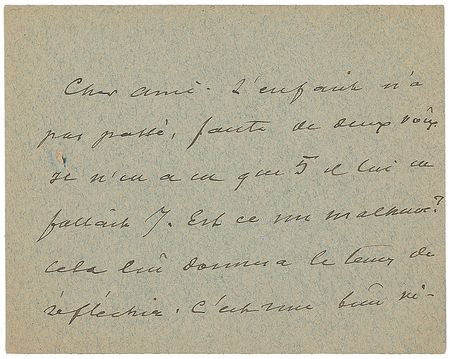 Cher ami. L'enfant n'a
pas passé, faute de deux voix.
Il n'en a eu que 5 il lui en
fallait 7. Est ce un malheur?
Cela lui donnera le temps de
réfléchir. C'est une bien